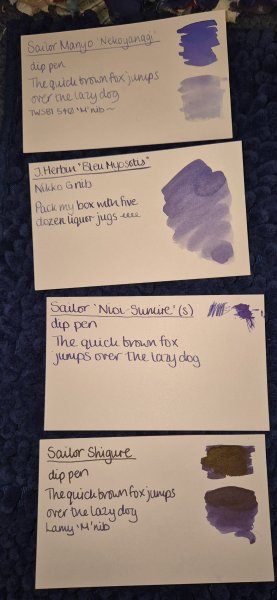 Sailor Manyo 'Nekoyanagi'
dip pen
The quick brown fox jumps
over the lazy dog
TWSBI 540 'M' nib ~
J. Herbin "Bleu Myosotis"
Nikko G nib
Pack my box with five
dozen liquor jugs
Sailor 'Nioi-Sumire' (s)
dip pen
The quick brown fox
jumps over the lazy dog
Sailor Shigure
dip pen
The quick brown fox jumps
over the lazy dog
Lamy 'M' nib